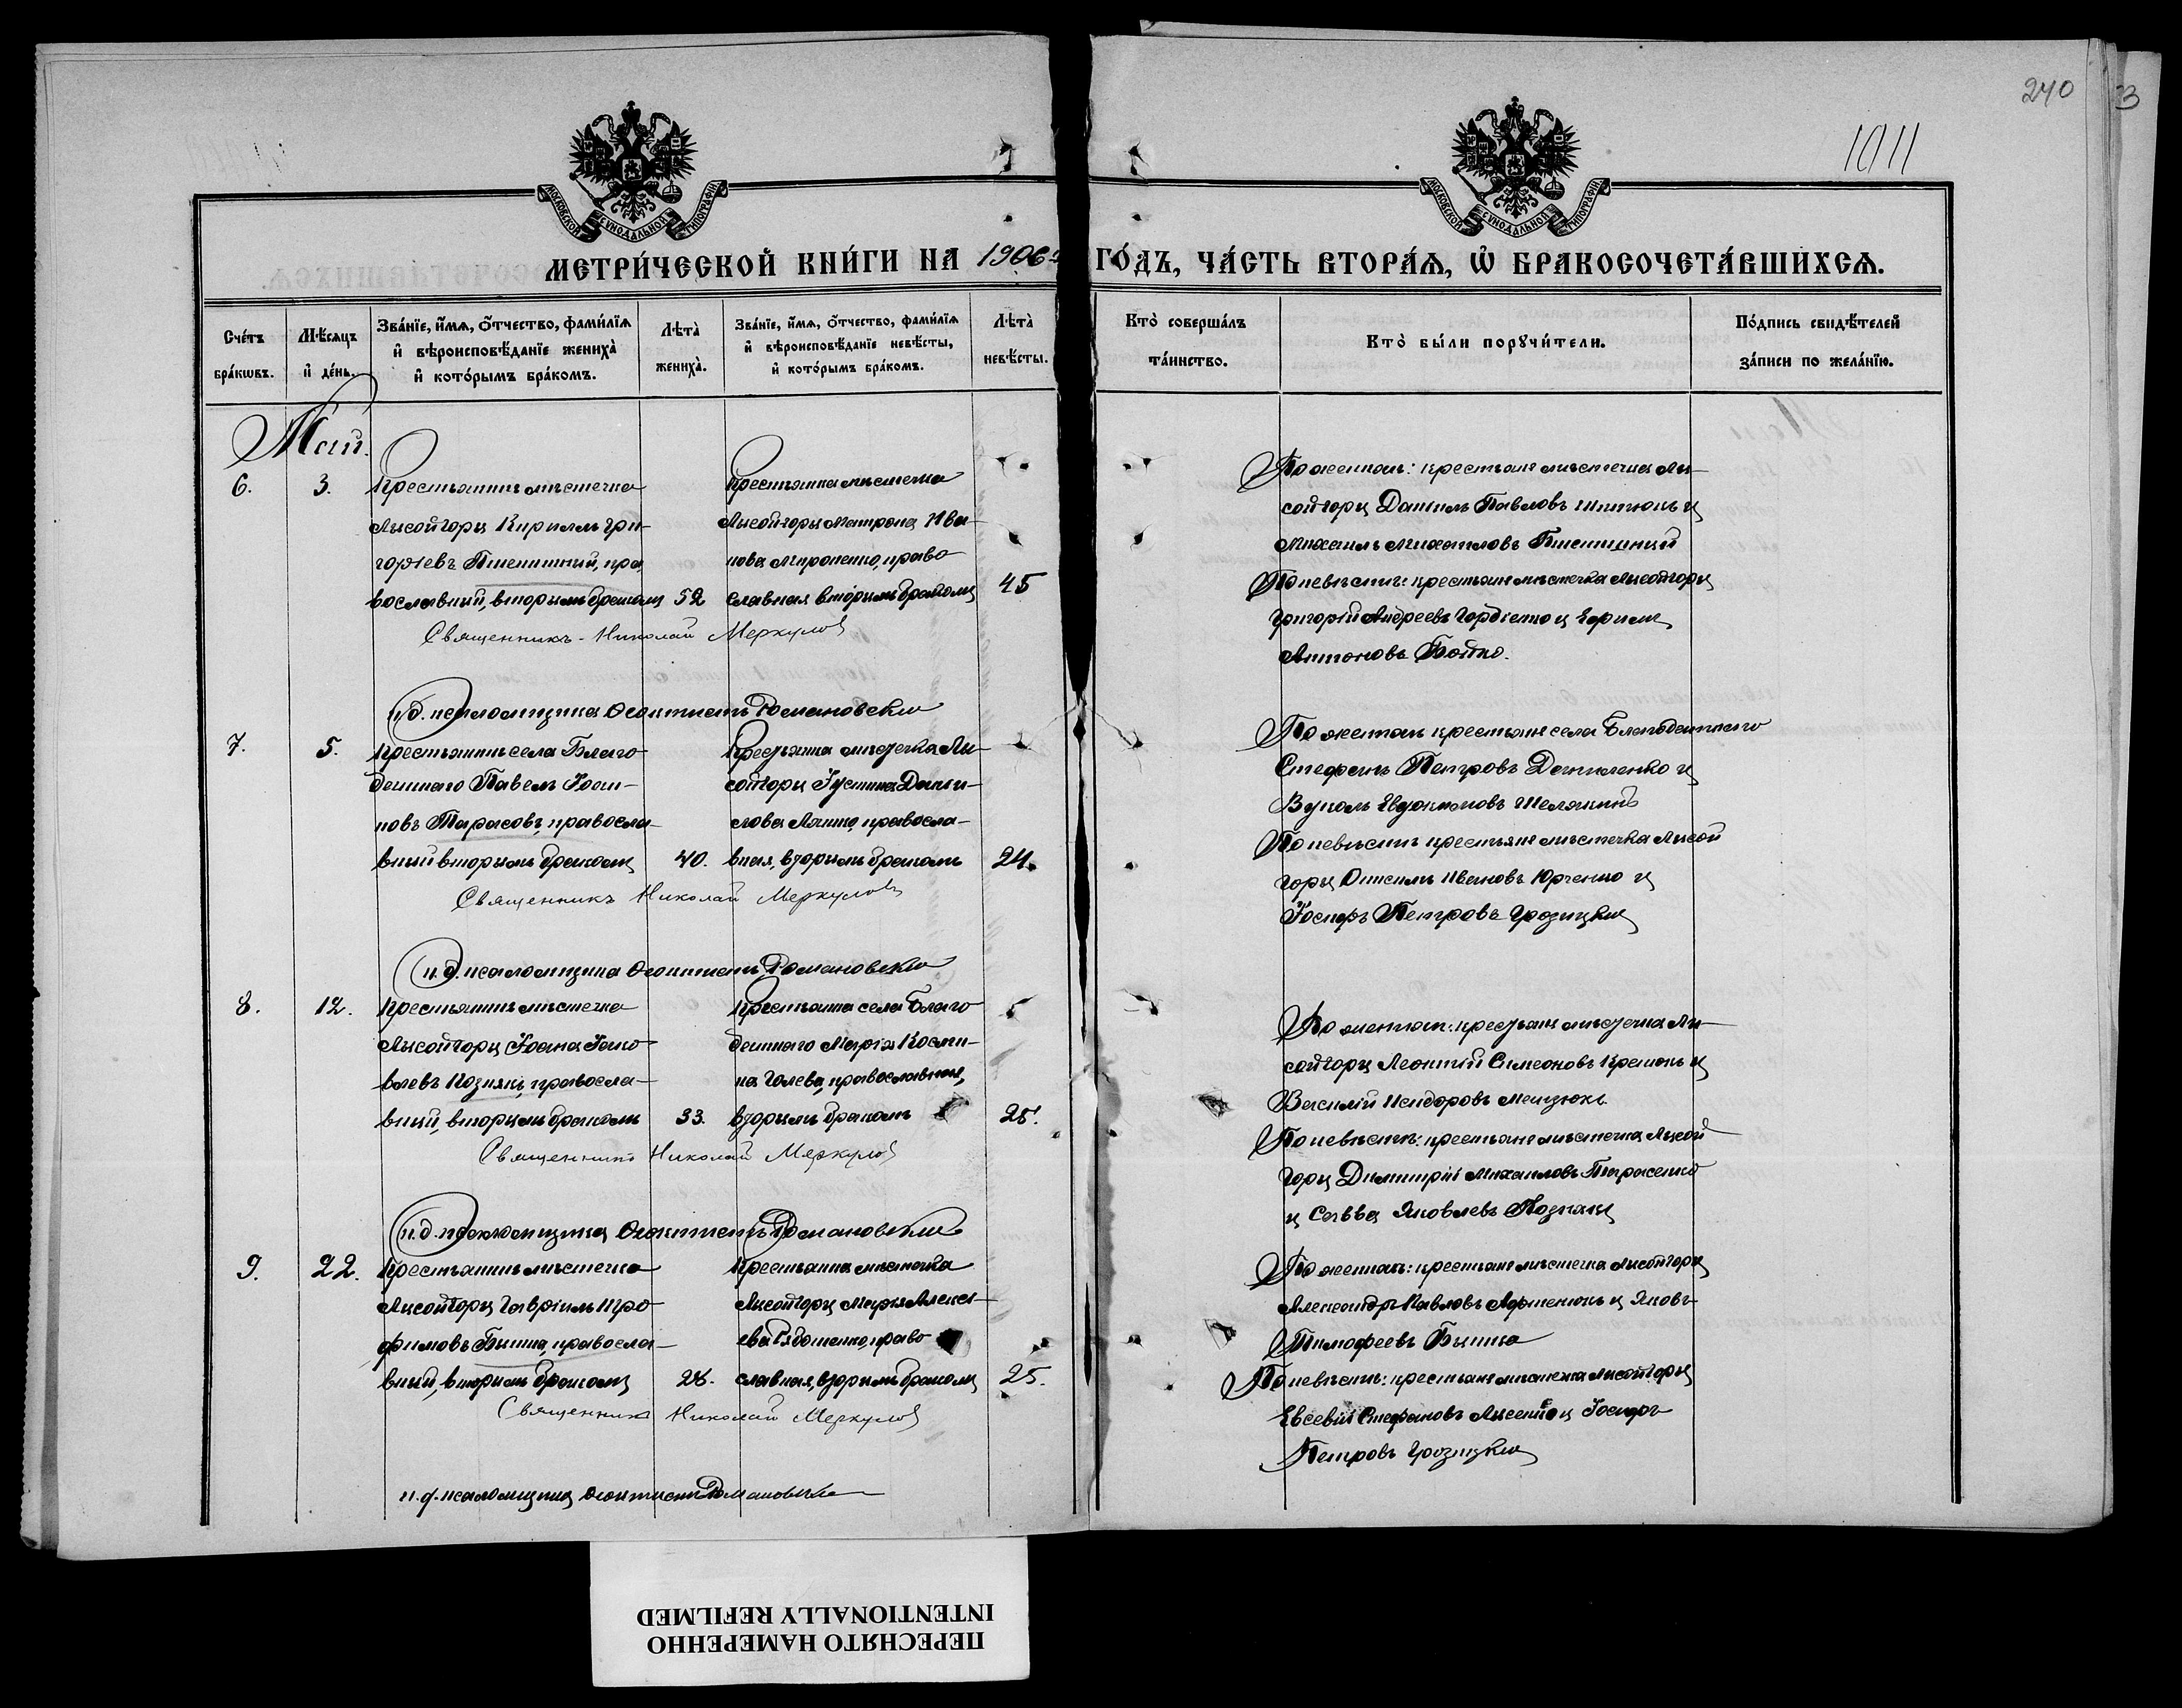 240
3
1011
МОСКОВСКОЙ СѴНОДАЛЬНОЙ ТИПОГРАФІИ
МОСКОВСКОЙ СѴНОДАЛЬНОЙ ТИПОГРАФІИ
МЕТРИ́ЧЕСКОЙ КНИ́ГИ НА 1906 ГО́ДЪ, ЧА́СТЬ ВТОРА́Ѧ, Ѡ҆ БРАКОСОЧЕТА́ВШИХСѦ.
Сче́тъ бра́кѡвъ.
Мѣ́сяцъ и҆ де́нь.
Зва́нїе, и҆́мѧ, ѻ҆́тчество, фами́лїѧ и҆ вѣроисповѣ́данїе жениха̀ и҆ кото́рымъ бра́комъ.
Лѣ́та̀ жениха̀.
Зва́нїе, и҆́мѧ, ѻ҆́тчество, фами́лїѧ и҆ вѣроисповѣ́данїе невѣ́сты, и҆ кото́рымъ бра́комъ.
Лѣ́та̀ невѣ́сты.
Кто̀ соверша́лъ та́инство.
Кто̀ бы́ли порꙋчи́тели.
По́дпись свидѣ́телей за́писи по жела́нїю.
Май.
6.
3.
Крестьянинъ мѣстечка
Лысойгоры Кириллъ Гри-
горіевъ Пшеничный, пра
вославный, вторымъ бракомъ
52
Крестьянка мѣстечка
Лысойгоры Матрона Ива-
нова Мироненко, право
славная вторымъ бракомъ
45
По женихѣ: крестьяне мѣстечка Лы-
сойгоры Даніилъ Павловъ и
Михаилъ Михаиловъ Пшеничный
По невѣстѣ: крестьяне мѣстечка Лысойгоры
Григорій Андреевъ Гордіенко и Ефимъ
Антоновъ Бойко.
Священникъ - Николай Меркулов
и.д. псаломщика Романовскій
7.
5.
Крестьянинъ села Благо-
датнаго Павелъ Іоан-
новъ Тарасовъ, правосла-
вный вторымъ бракомъ
40.
Крестьянка мѣстечка Лы-
сойгоры Іустина Дани-
лова Ляшко, правосла-
вная, вторымъ бракомъ
24.
По женихѣ крестьяне села Благодатнаго
Стефанъ Петровъ Даниленко и
Вуколъ Евдокимовъ Шелякинъ
По невѣстѣ крестьяне мѣстечка Лысой
горы Ивановъ Юрченко и
Іосифъ Петровъ Грозицкій
Священникъ Николай Меркулов
и.д. псаломщика Романовскій
8.
12.
Крестьянинъ мѣстечка
Лысойгоры Іоаннъ Яко
влевъ Познякъ, правосла-
вный, вторымъ бракомъ
33.
Крестьянка села Благо
датнаго Марія Косми-
на Голева, православная,
вторымъ бракомъ
25.
По женихѣ: крестьяне мѣстечка Лы-
сойгоры Леонтій Симеоновъ и
Василій Исидоровъ
По невѣстѣ: крестьяне мѣстечка Лысой
горы Димитрій Михаиловъ Тарасенко
и Савва Яковлевъ Познякъ
Священникъ Николай Меркулов
и.д. псаломщика Романовскій
9.
22.
Крестьянинъ мѣстечка
Лысойгоры Гавріилъ Тро
фимовъ Бышко, правосла-
вный, вторымъ бракомъ
28.
Крестьянка мѣстечка
Лысойгоры Марѳа Алексі-
ева Рябошенко, право
славная, вторымъ бракомъ
25.
По женихѣ: крестьяне мѣстечка Лысойгоры
Александръ Павловъ и Яковъ
Тимофеевъ Бышко
По невѣстѣ: крестьяне мѣстечка Лысойгоры
Евсевій Стефановъ Лысенко и Іосифъ
Петровъ Грозицкій
Священникъ Николай Меркулов
и.д. псаломщика Романовскій
ПЕРЕСНЯТО НАМЕРЕННО
INTENTIONALLY REFILMED